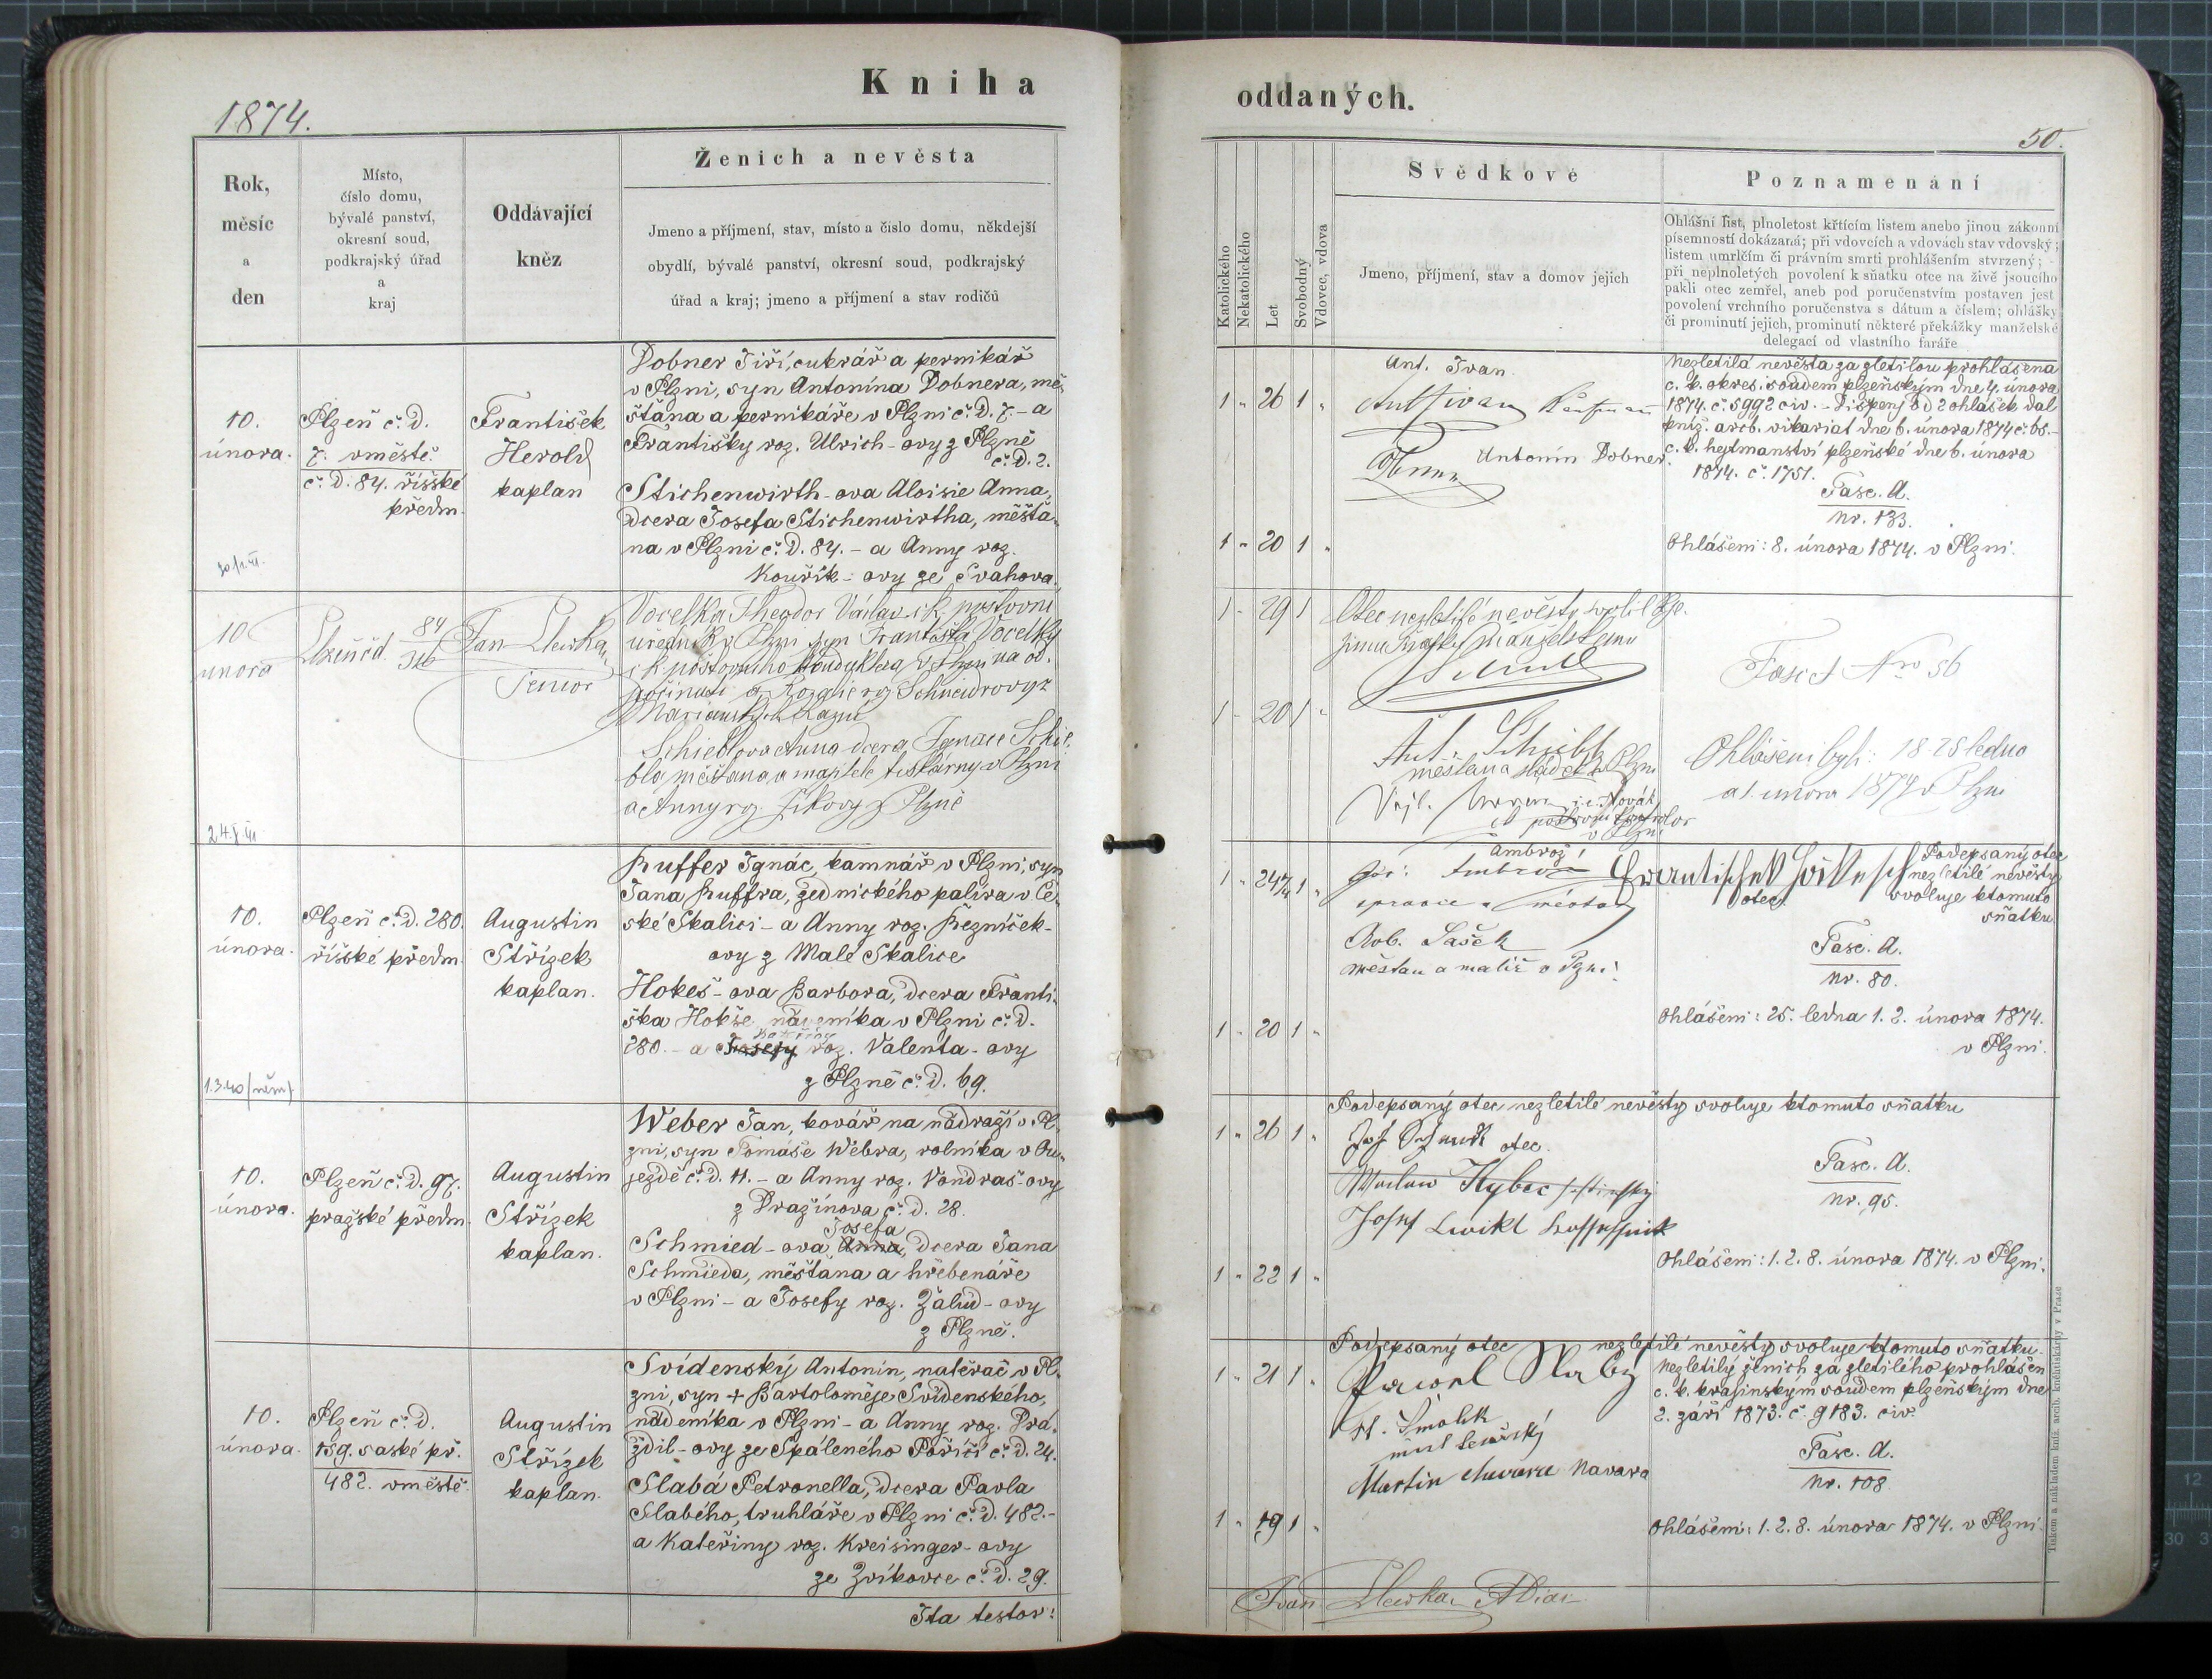 Kniha
1874.
Rok,
měsíc
a
den
Místo,
číslo domu,
bývalé panství,
okresní soud,
podkrajský úřad
a
kraj
Oddávající
kněz
Ženich a nevěsta
Jmeno a příjmení, stav, místo a číslo domu, někdejší
obydlí, bývalé panství, okresní soud, podkrajský
úřad a kraj; jmeno a příjmení a stav rodičů
10.
února.
Plzeň č. d.
7. v městě.
č. d. 84. říšské
předm.
František
Herold
kaplan
Dobner Jiří, cukrář a pernikář
v Plzni, syn Antonína Dobnera, mě-
šťana a pernikáře v Plzni č. d. 7. – a
Františky roz. Ulrich-ovy z Plzně
č. d. 2.
Stichenwirth-ova Aloisie Anna,
dcera Josefa Stichenwirtha, měšťa-
na v Plzni č. d. 84. – a Anny roz.
Kouřík-ovy ze Svahova.
10
února
Plzeň čd. 84
Jan Hlewka,
senior
Vocelka Theodor Václav c. k. poštovní
úředník v Plzni syn Františka Vocelky
c. k. poštovního v Plzni na od-
počinutí a Rozalie roz Schneidrovy z
Mariánských Lázní
Schieblova Anna dcera Ignace Schie-
bla měšťana a majitele tiskárny v Plzni
a Anny roz. z Plzně
10.
února.
Plzeň č. d. 280.
říšské předm.
Augustin
Střízek
kaplan.
Ruffer Ignác, kamnář v Plzni, syn
Jana Ruffra, zednického palíra v Če-
ské Skalici – a Anny roz. Řezníček-
ovy z Malé Skalice
Hokeš-ova Barbora, dcera Franti-
ška Hokše nádeníka v Plzni č. d.
280. – a Josefy Kateřiny roz. Valenta-ovy
z Plzně č. d. 69.
1.3.40 (něm)
10.
února.
Plzeň č. d. 97.
pražské předm.
Augustin
Střízek
kaplan.
Weber Jan, kovář na nádraží v Pl-
zni, syn Tomáše Webra, rolníka v Ou-
jezdě č. d. 11. – a Anny roz. Vondraš-ovy
z Dražínova č. d. 28.
Josefa
Schmied-ova Anna, dcera Jana
Schmieda, měšťana a hřebenáře
v Plzni – a Josefy roz. Žalud-ovy
z Plzně.
10.
února.
Plzeň č. d.
159. saské př.
482. v městě.
Augustin
Střízek
kaplan.
Svídenský Antonín, natěrač v Pl-
zni, syn + Bartoloměje Svídenského,
nádeníka v Plzni – a Anny roz. Prá-
zdil-ovy ze Spáleného Poříčí č. d. 24.
Slabá Petronella, dcera Pavla
Slabého, truhláře v Plzni č. d. 482. –
a Kateřiny roz. Kreisinger-ovy
ze Zvíkovce č. d. 29.
Ita testor:
oddaných.
50.
Katolického
Nekatolického
Let
Svobodný
Vdovec, vdova
Svědkové
Jmeno, příjmení, stav a domov jejich
Poznamenání
Ohlášní list, plnoletost křticím listem anebo jinou zákonní
písemností dokázaná; při vdovcích a vdovách stav vdovský;
listem umrlčím či právním smrti prohlášením stvrzený; -
při neplnoletých povolení k sňatku otce na živě jsoucího
pakli otec zemřel, aneb pod poručenstvím postaven jest
povolení vrchního poručenstva s dátum a číslem; ohlášky
či prominutí jejich, prominutí některé překážky manželské
delegací od vlastního faráře
1 " 26 1 "
Ant. Ivan.
Ant Ivan Kaufmann
Antonín Dobner.
1 " 20 1 "
Nezletilá nevěsta za zletilou prohlášena
c. k. okres. soudem plzeňským dne 4. února
1874. č. 5992 civ. – Dispens od 2 ohlášek dal
kníž. arcb. vikariat dne 6. února 1874 č. 65. –
c. k. hejtmanství plzeňské dne 6. února
1874. č. 1751.
Fasc. A.
nr. 133.
Ohlášeni: 8. února 1874. v Plzni.
1 - 29 1
Otec nezletilé nevěsty svolil
manželskému
1 - 20 1 -
Ant. Schiebl
měšťan a sládek v Plzni
Novák
v Plzni
Fasc A Nro 56
Ohlášeni byli: 18. 25 ledna
a 1. února 1874 v Plzni
1 " 24 7/12 1 "
Ambrož
měšťan
Rob. Sašek
měšťan a malíř v Plzni
Frantischek Hokesch
otec.
Podepsaný otec
nezletilé nevěsty
svoluje k tomuto
sňatku
Fasc. A.
nr. 80.
1 - 20 1 "
Ohlášeni: 25. ledna 1. 2. února 1874.
v Plzni.
Podepsaný otec nezletilé nevěsty svoluje k tomuto sňatku
1 " 26 1 "
otec.
Waclaw Kybec
Josef Cwikl
Fasc. A.
nr. 95.
1 " 22 1 "
Ohlášeni: 1. 2. 8. února 1874. v Plzni.
Podepsaný otec nezletilé nevěsty svoluje k tomuto sňatku.
1 " 21 1 "
Pawel Slaby
Smolik
Martin Navara
Nezletilý ženich za zletilého prohlášen
c. k. krajinským soudem plzeňským dne
2. září 1873. č. 9183. civ.
Fasc. A.
nr. 108.
1 " 19 1 "
Ohlášeni: 1. 2. 8. února 1874. v Plzni.
Jan Hlewka,
Tiskem a nákladem kníž. arcib. knihtiskárny v Praze